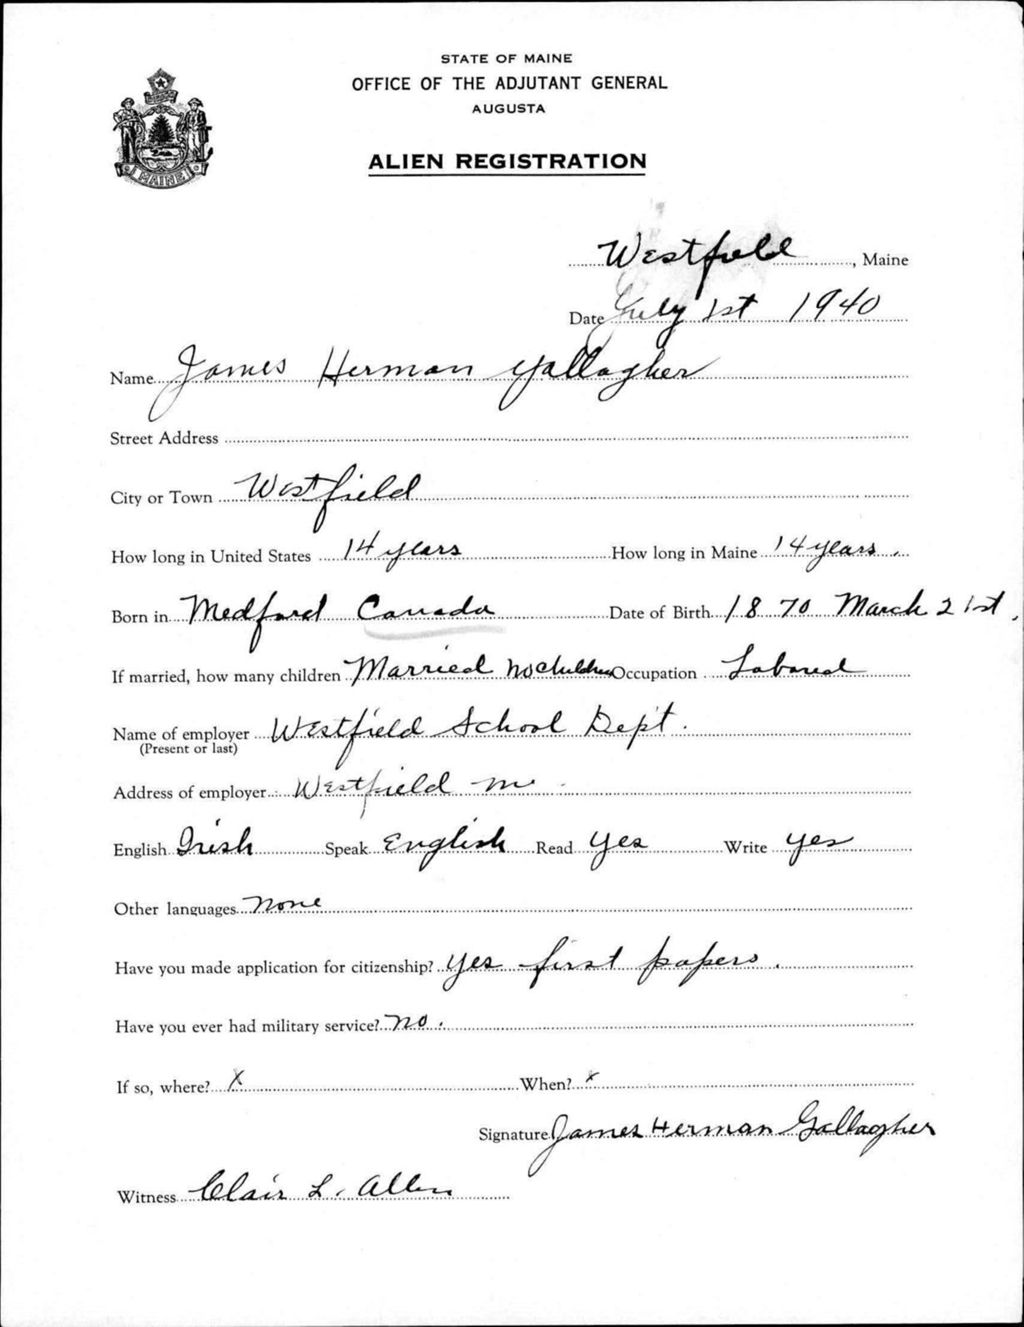 STATE OF MAINE
OFFICE OF THE ADJUTANT GENERAL
AUGUSTA
MAINE
ALIEN REGISTRATION
Westfield, Maine
Date July 1st 1940
Name James Herman Gallagher
Street Address
City or Town Westfield
How long in United States 14 years How long in Maine 14 years.
Born in Medford Canada Date of Birth 1870 March 21st.
If married, how many children Married no children Occupation Labored
Name of employer Westfield School Dept.
(Present or last)
Address of employer Westfield Me.
English Irish Speak English Read Yes Write yes
Other languages none
Have you made application for citizenship? yes first papers.
Have you ever had military service? no.
If so, where? X When? x
Signature James Herman Gallagher
Witness Clair L. Allen